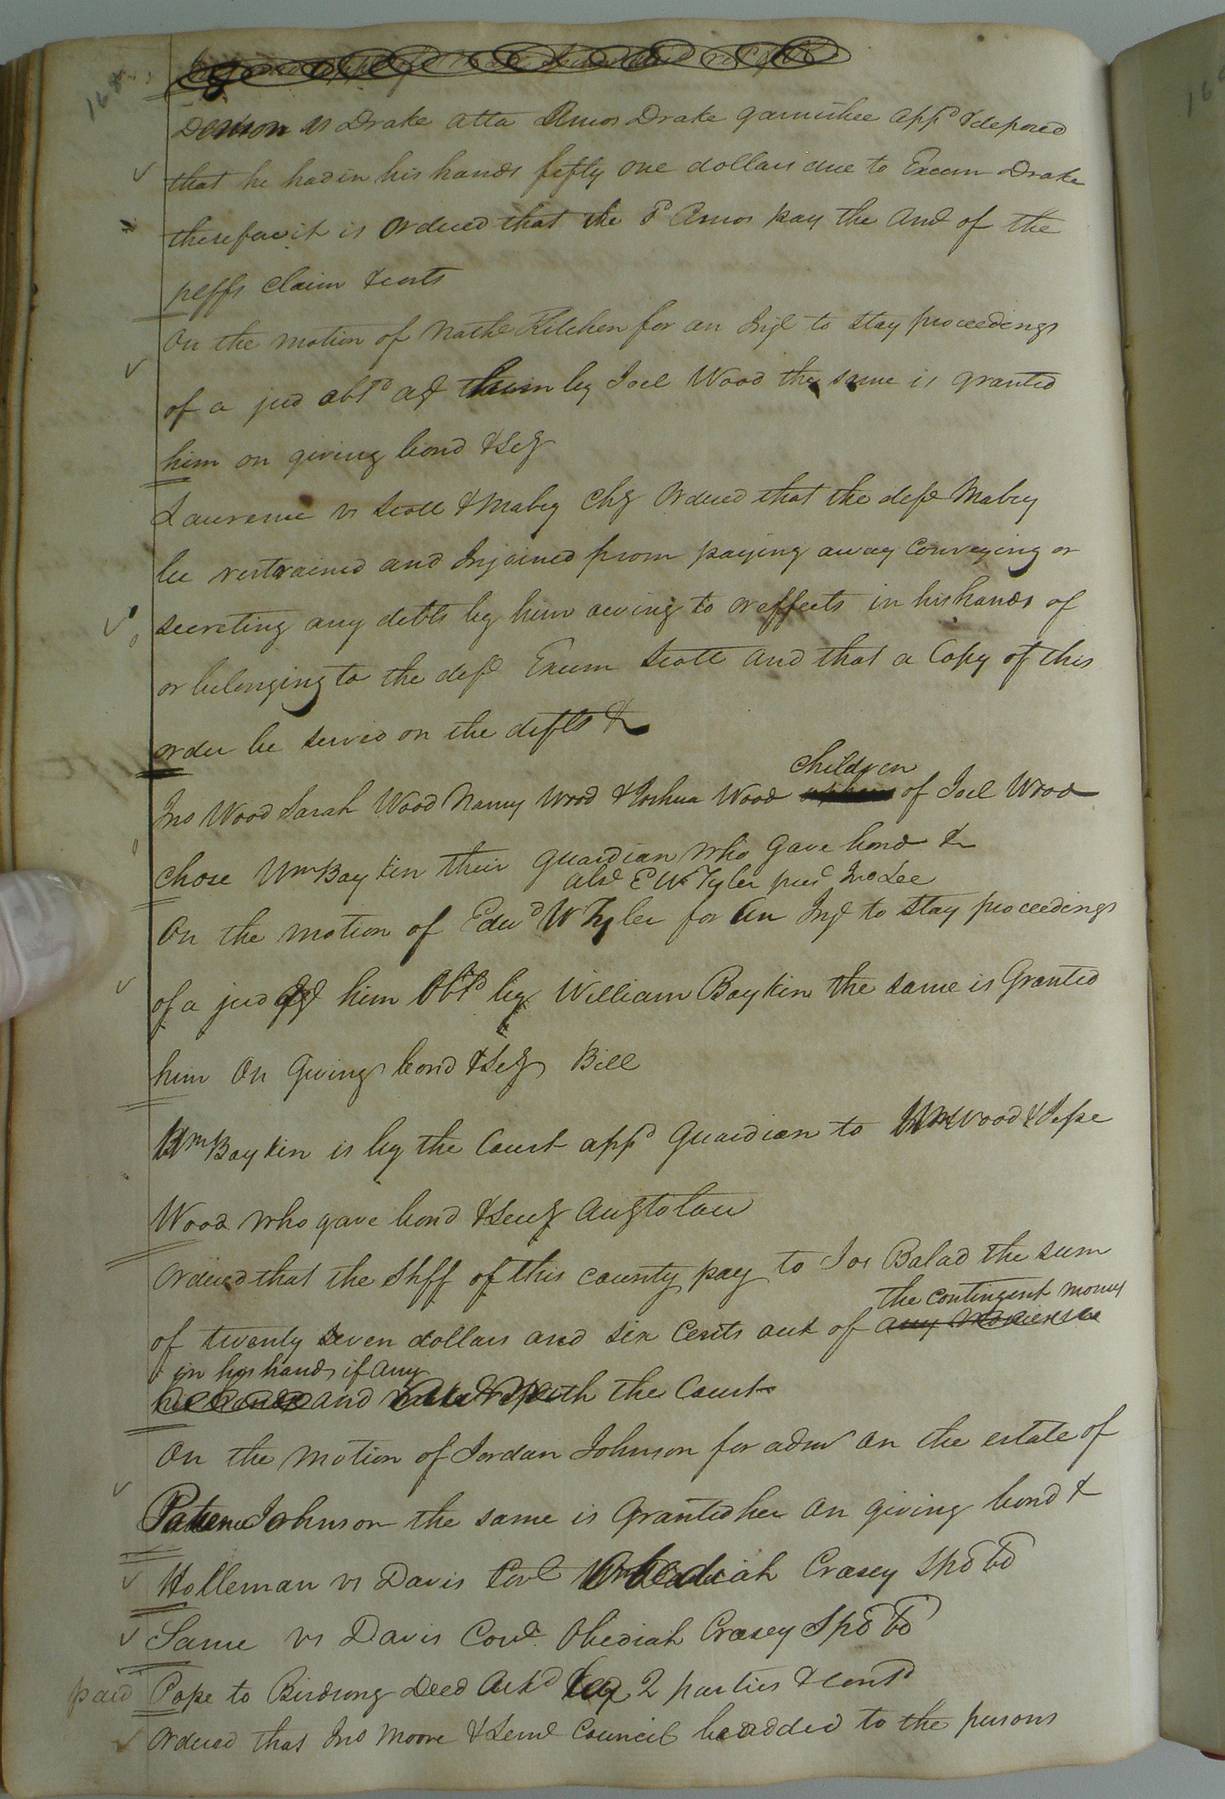 168
Denson vs Drake atta Amos Drake garnishee appd & deposed
that he had in his hands fifty one dollars due to Exum Drake
therefore it is ordered that the sd Amos pay the amt of the
pltffs claim & costs
On the motion of Nathl Kitchen for an Injt to stay proceedings
of a jud obtd agt him by Joel Wood the same is granted
him on giving bond & Secy
Laurence vs Scott & Mabry Chy Ordered that the deft Mabry
be restrained and Injoined from paying away conveying or
secreting any debts by him owing to or effects in his hands of
or belonging to the deft Exum Scott and that a Copy of this
order be served on the defts &
children
Jno Wood Sarah Wood Nancy Wood & Joshua Wood of Joel Wood
chose Wm Boykin their guardian who gave bond &
also E W Tyler
On the motion of Edwd W Tyler for an Injt to stay proceedings
of a jud agt him Obtd by William Boykin the same is Granted
him On Giving bond & Secy Bill
Wm Boykin is by the Court appd Guardian to Wm Wood & Jesse
Wood who gave bond & Secy accg to law
Ordered that the Shff of this county pay to Jos Balad the sum
the contingent money
of twenty seven dollars and six Cents out of
in his hands if any
and with the Court
On the motion of Jordan Johnson for admr on the estate of
Patience Johnson the same is Granted her on giving bond &
Holleman vs Davis Covt Obediah Crasey Spd bd
Same vs Davis Covt Obediah Crasey Spd bd
paid Pope to Birdsong Deed Ackd by 2 parties & contd
Ordered that Jno Moore & Leml Council be added to the persons